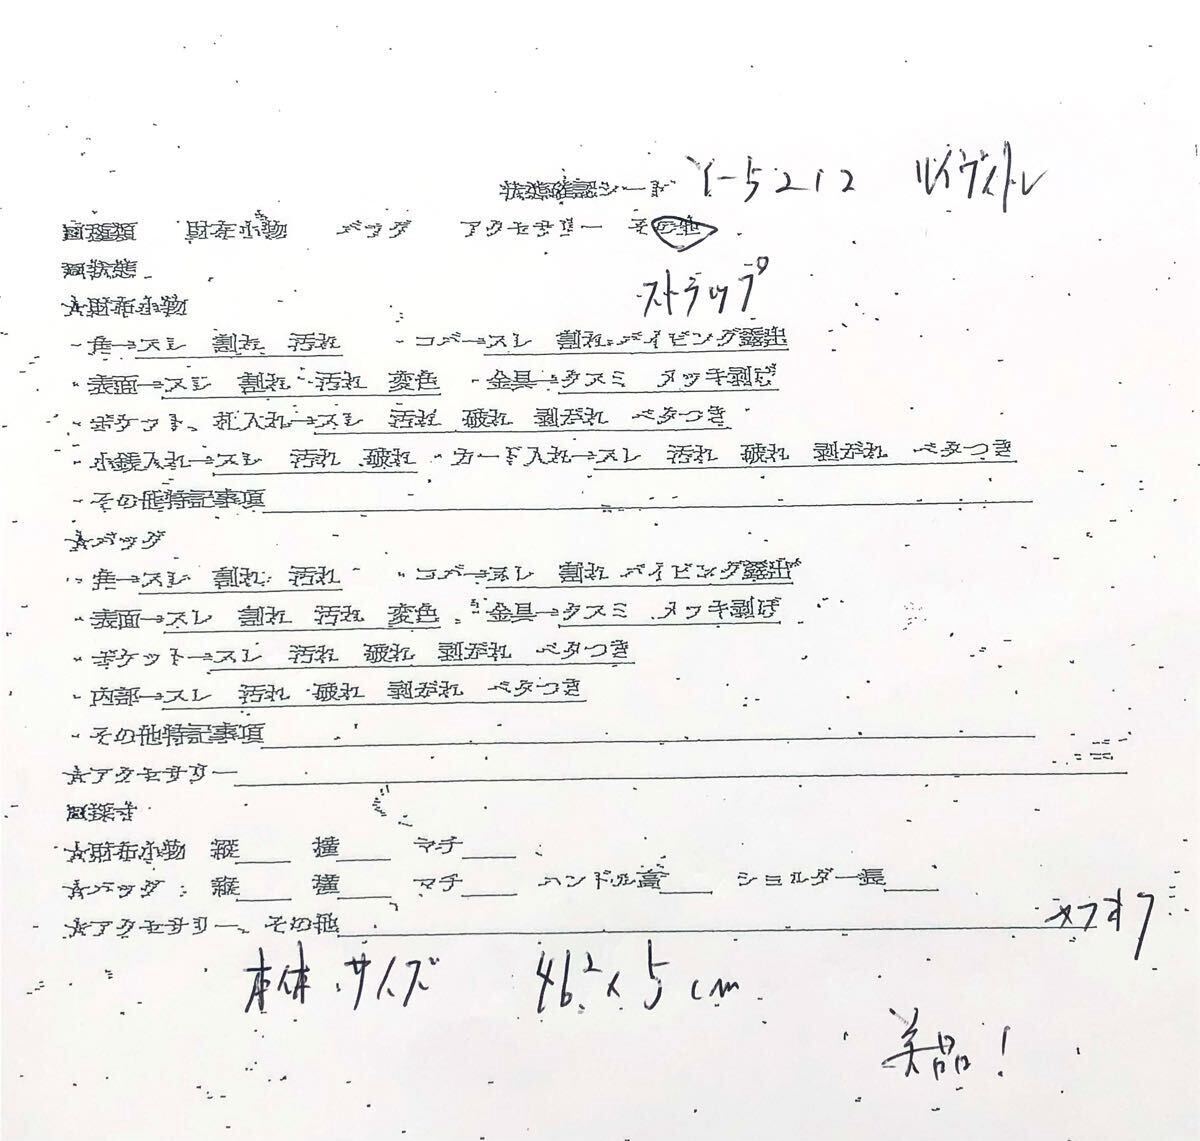 状態確認シート Y-5212 ルイヴィトン
■種類 財布小物 バッグ アクセサリー その他
■状態 ストラップ
★財布小物
・角→スレ 割れ 汚れ ・コバ→スレ 割れ パイピング露出
・表面→スレ 割れ 汚れ 変色 ・金具→クスミ メッキ剥げ
・ポケット、札入れ→スレ 汚れ 破れ 剥がれ ベタつき
・小銭入れ→スレ 汚れ 破れ ・カード入れ→スレ 汚れ 破れ 剥がれ ベタつき
・その他特記事項
★バッグ
・角→スレ 割れ 汚れ ・コバ→スレ 割れ パイピング露出
・表面→スレ 割れ 汚れ 変色 ・金具→クスミ メッキ剥げ
・ポケット→スレ 汚れ 破れ 剥がれ ベタつき
・内部→スレ 汚れ 破れ 剥がれ ベタつき
・その他特記事項
★アクセサリー
■採寸
★財布小物 縦 横 マチ
★バッグ 縦 横 マチ ハンドル高 ショルダー長
★アクセサリー、その他 ヤフオク
本体サイズ 46.2×5cm
美品!